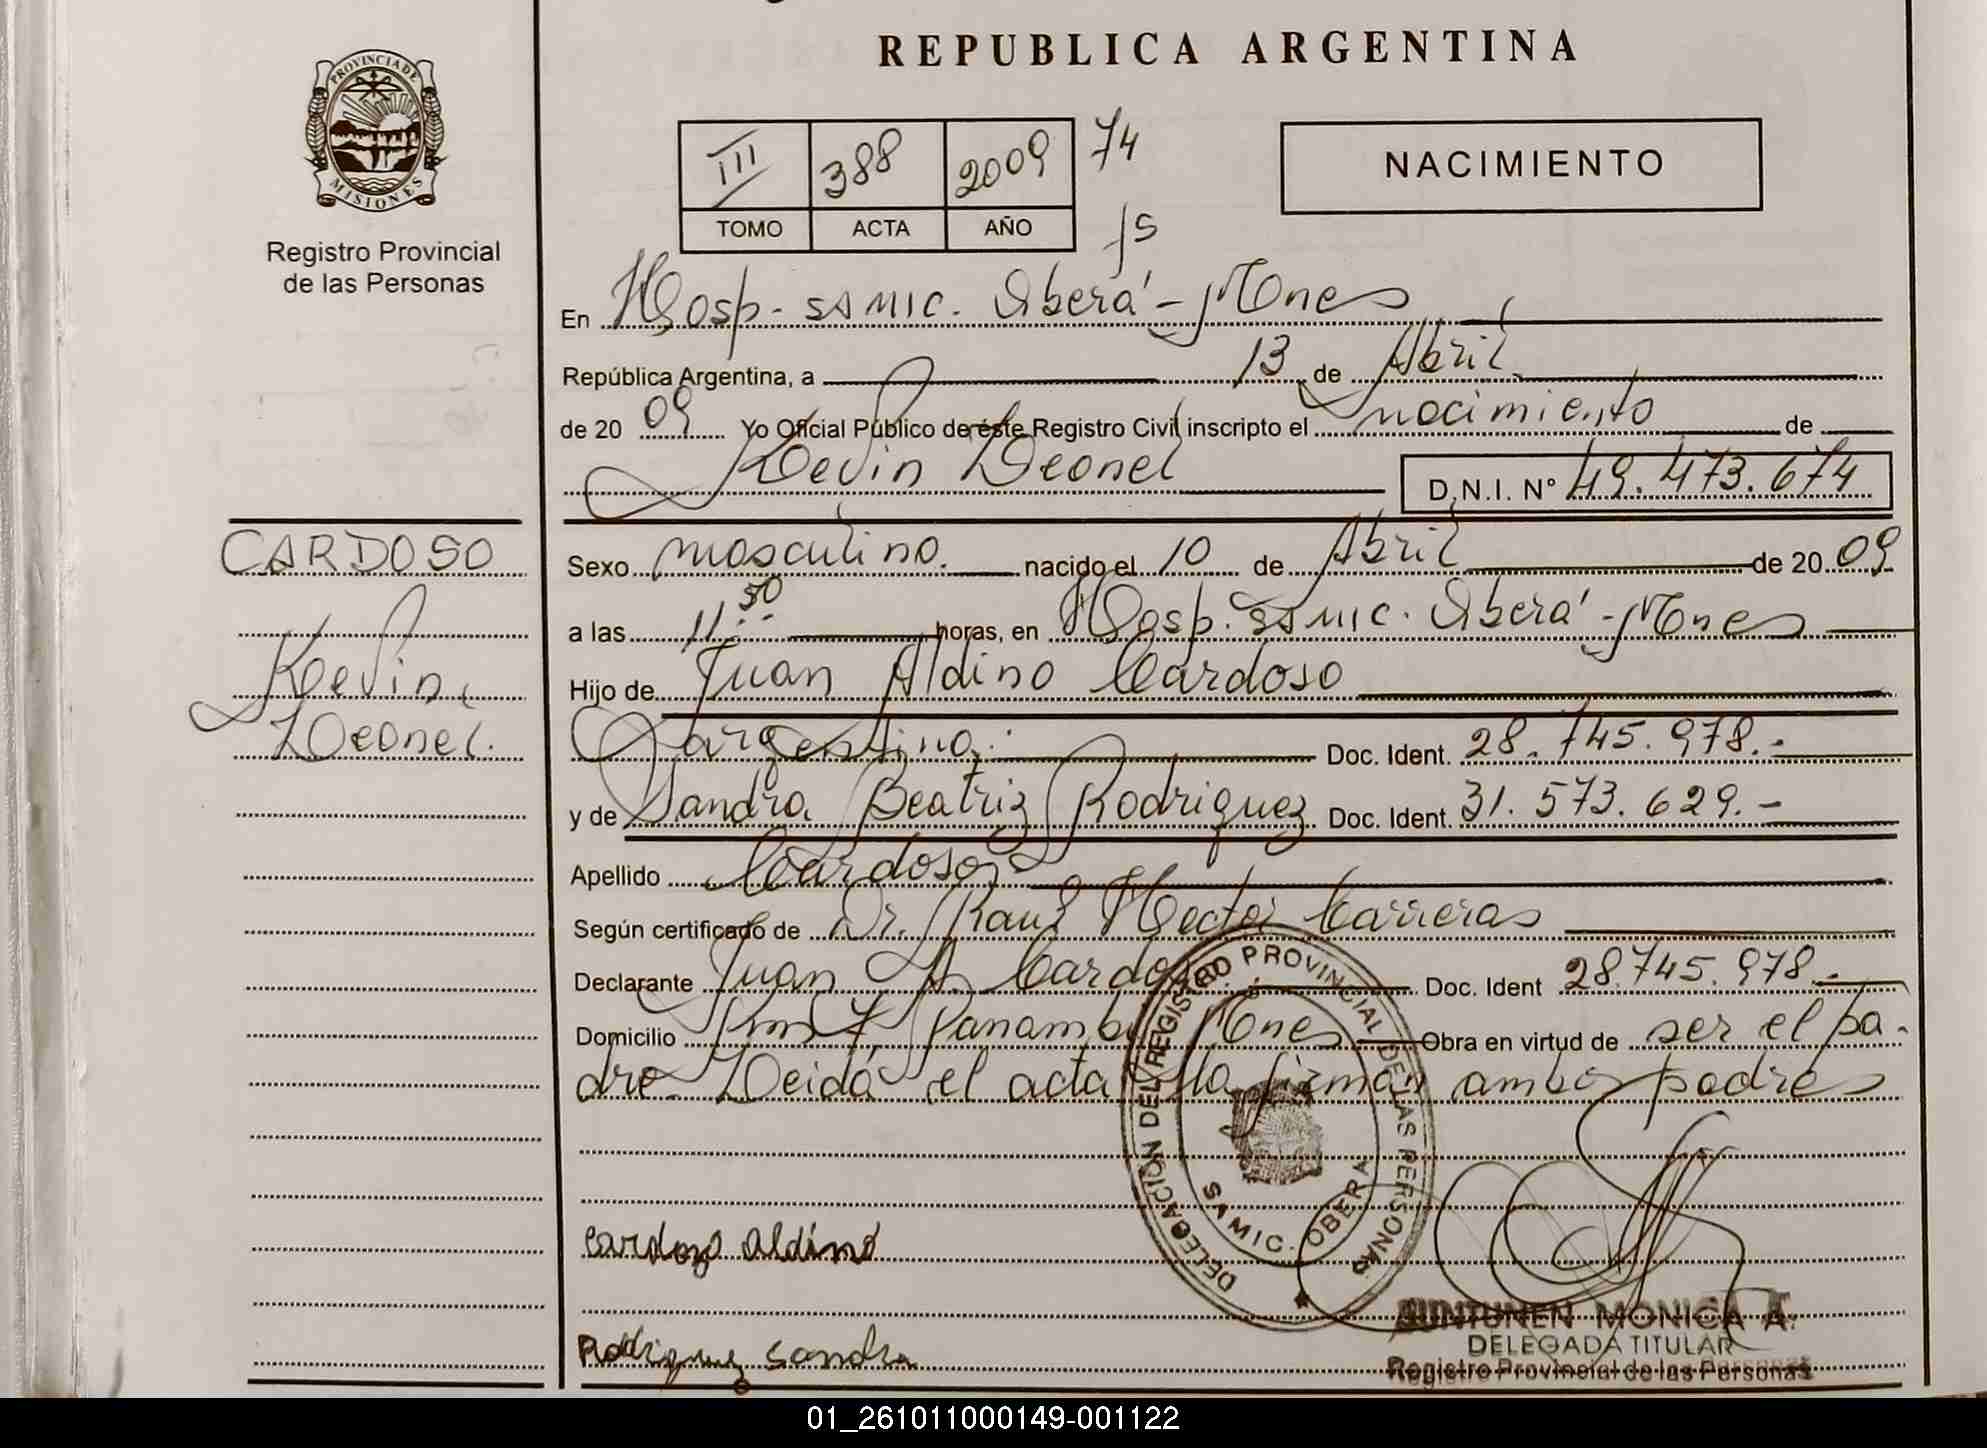 REPUBLICA ARGENTINA
PROVINCIA DE
MISIONES
Registro Provincial
de las Personas
III 388 2009 74
TOMO ACTA AÑO fs
NACIMIENTO
En Hosp. SAMIC. Oberá - Mnes
República Argentina, a 13 de Abril
de 20 09 Yo Oficial Público de éste Registro Civil inscripto el nacimiento de
Kevin Leonel D.N.I. Nº 49.473.674
CARDOSO
Kevin
Leonel.
Sexo masculino. nacido el 10 de Abril de 20 09
a las 11:50 horas, en Hosp. SAMIC. Oberá - Mnes
Hijo de Juan Aldino Cardoso
argentino. Doc. Ident. 28.745.978.-
y de Sandra Beatriz Rodriguez Doc. Ident. 31.573.629.-
Apellido Cardoso
Según certificado de Dr. Raul Hector Carreras
Declarante Juan A. Cardoso Doc. Ident 28.745.978.-
Domicilio Km 7, Panambi Mnes Obra en virtud de ser el pa-
dre. Leida el acta la firman ambos padres
DELEGACIÓN DEL REGISTRO PROVINCIAL DE LAS PERSONAS
SAMIC. OBERA
Cardozo Aldino
Rodriguez Sandra
MONICA A.
DELEGADA TITULAR
Registro Provincial de las Personas
01_261011000149-001122